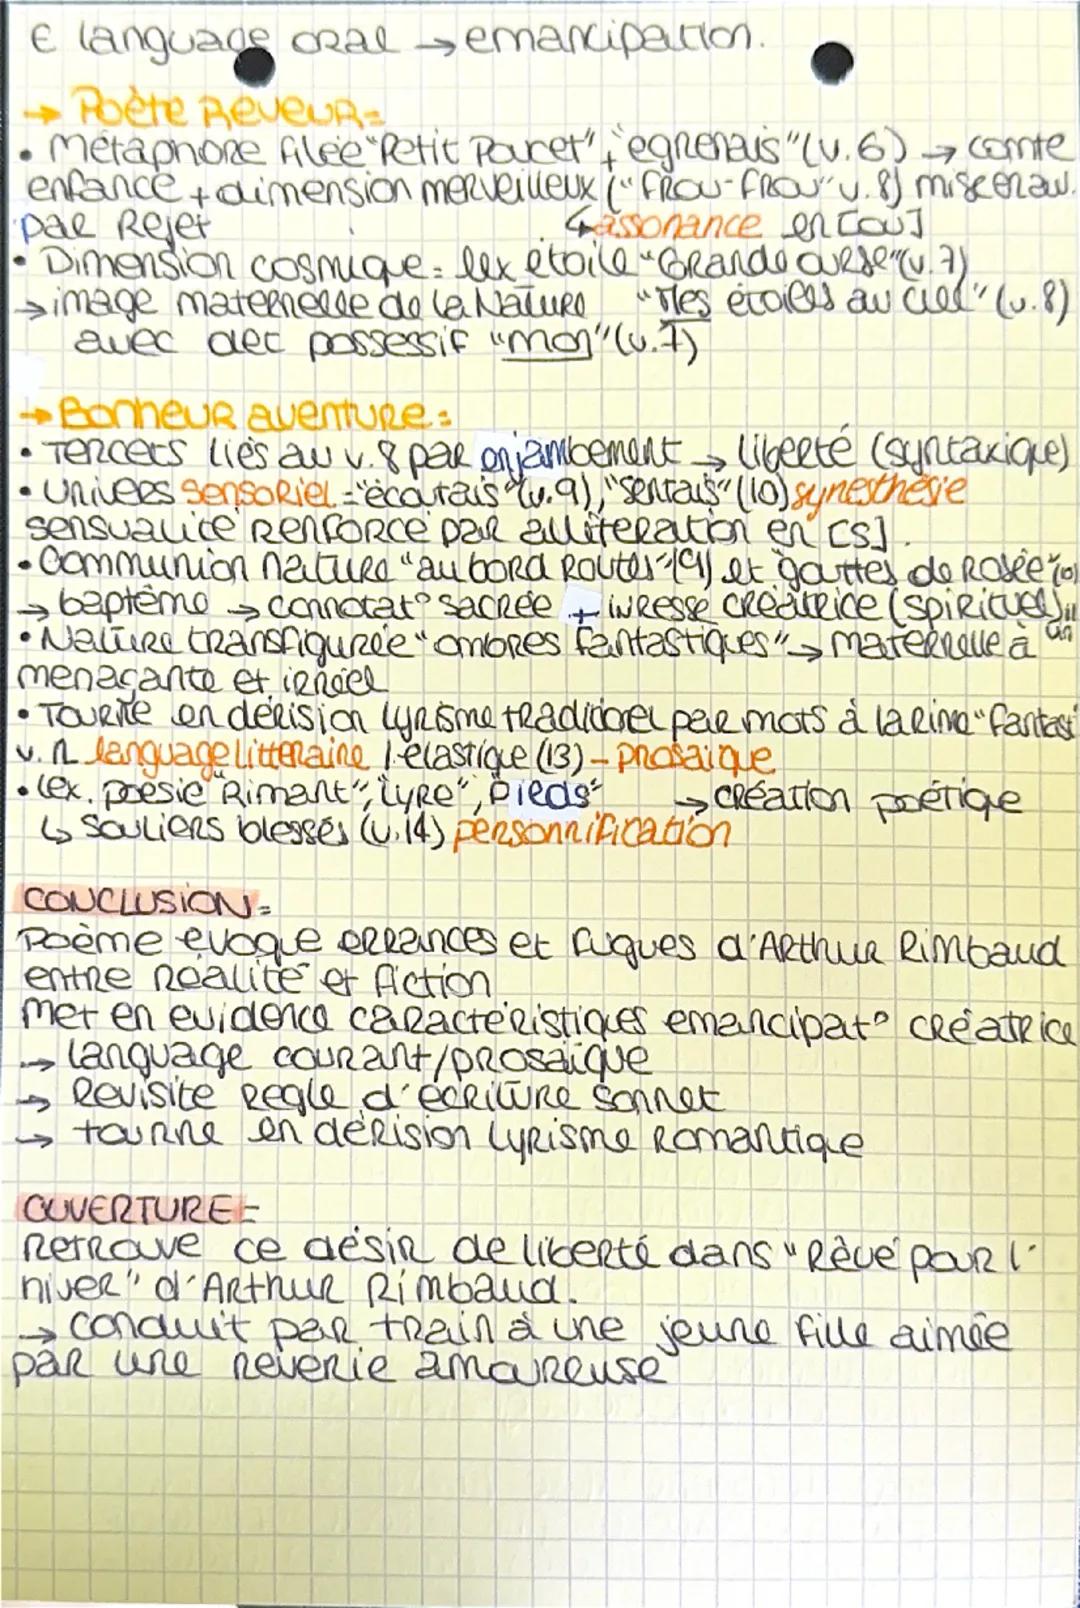 E language oral → emancipation.
→ Poète Reveur=
• Métaphore filée "Petit Poucet", "egrenais" (v.6) → comte
enfance + dimension merveilleux ("frou-frou" v.8) mise en av.
par Rejet ↳ assonance en [ou]
• Dimension cosmique = lex étoile "Grande ourse" (v.7)
→ image maternelle de la Nature "Mes étoiles au ciel" (v.8)
avec det possessif "mon" (v.7)
→ Bonheur aventure =
• Tercets liés au v.8 par enjambement → liberté (syntaxique)
• Univers sensoriel = "écoutais" (v.9), "sentais" (10) synesthésie
sensualité renforcé par allitération en [s].
• Communion nature "au bord Routes" (9) et gouttes de Rosée" (10)
→ baptême → connotat° sacrée + ivresse créatrice (spirituel)
• Nature transfigurée "ombres fantastiques" → maternelle à
menaçante et irréel
• Tourne en dérision lyrisme traditionel par mots à la rime "fantast
language littéraire / élastique (13) - prosaïque
• lex. poésie "Rimant", "lyre", Pieds" → création poétique
↳ souliers blessés (v.14) personnification
CONCLUSION=
Poème évoque errances et fugues d'Arthur Rimbaud
entre réalité et fiction
Met en evidence caractéristiques emancipat° créatrice
→ language courant/prosaïque
→ Revisite Regle d'écriture sonnet
→ tourne en dérision lyrisme Romantique
OUVERTURE=
Retrouve ce désir de liberté dans "Rêvé pour l'
hiver" d'Arthur Rimbaud.
→ conduit par train à une jeune fille aimée
par une rêverie amoureuse